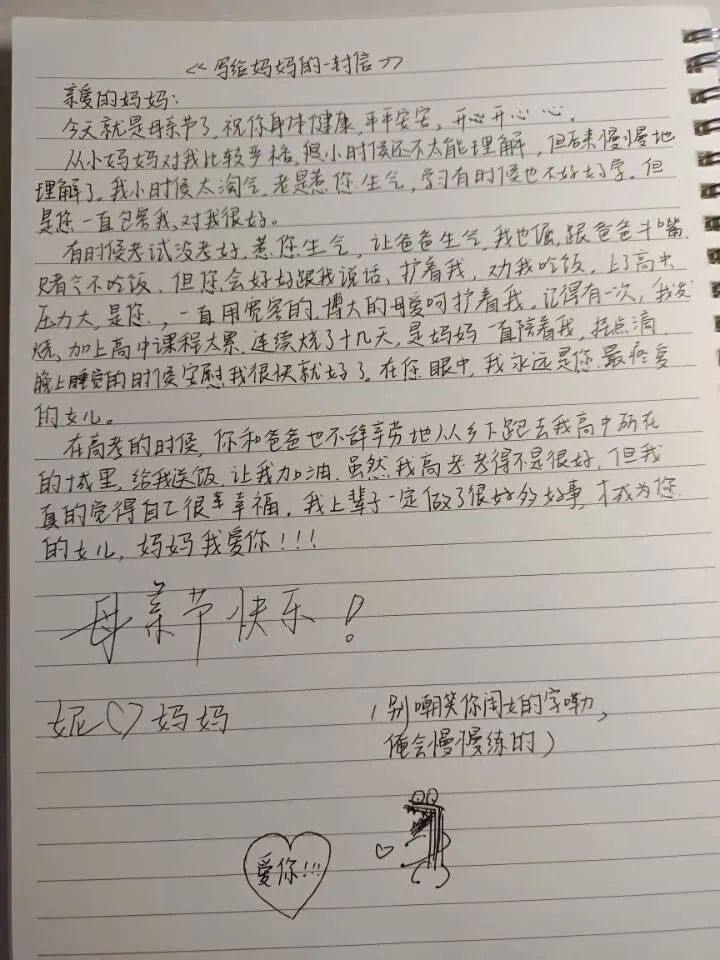 《写给妈妈的一封信》
亲爱的妈妈：
今天就是母亲节了，祝你身体健康，平平安安，开心开心心。
从小妈妈对我比较严格，很小时候还不太能理解，但后来慢慢地
理解了。我小时候太淘气，老是惹您生气，学习有时候也不好好学。但
是您一直包容我，对我很好。
有时候考试没考好，惹您生气，让爸爸生气，我也倔，跟爸爸斗嘴，
赌气不吃饭，但您会好好跟我说话，护着我，劝我吃饭，上了高中
压力大，是您，一直用宽容的，博大的母爱呵护着我。记得有一次，我发
烧，加上高中课程太累，连续烧了十几天，是妈妈一直陪着我，挂点滴，
晚上睡觉的时候安慰我很快就好了。在您眼中，我永远是您最疼爱
的女儿。
在高考的时候，你和爸爸也不辞辛劳地从乡下跑去我高中所在
的城里，给我送饭，让我加油。虽然我高考考得不是很好，但我
真的觉得自己很幸福，我上辈子一定做了很好多好事，才成为您
的女儿，妈妈我爱你！！！
母亲节快乐！
妮♡妈妈
（别嘲笑你闺女的字嘞，
俺会慢慢练的）
爱你!!!